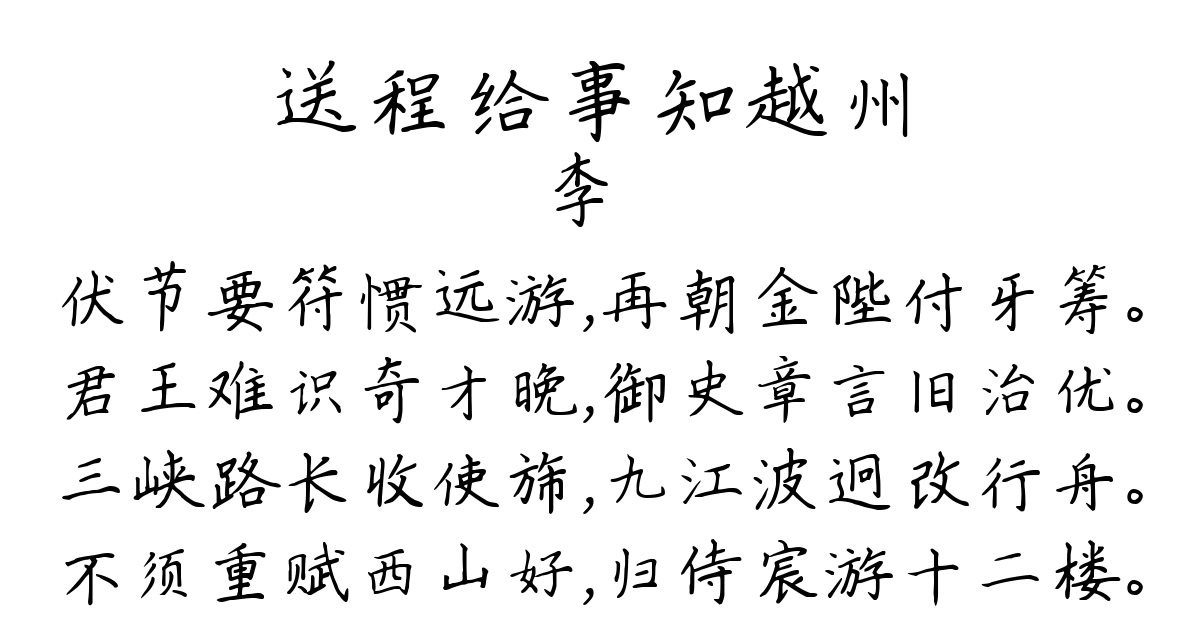 送程给事知越州
李
伏节要符惯远游,再朝金陛付牙筹。
君王难识奇才晚,御史章言旧治优。
三峡路长收使旆,九江波迥改行舟。
不须重赋西山好,归侍宸游十二楼。